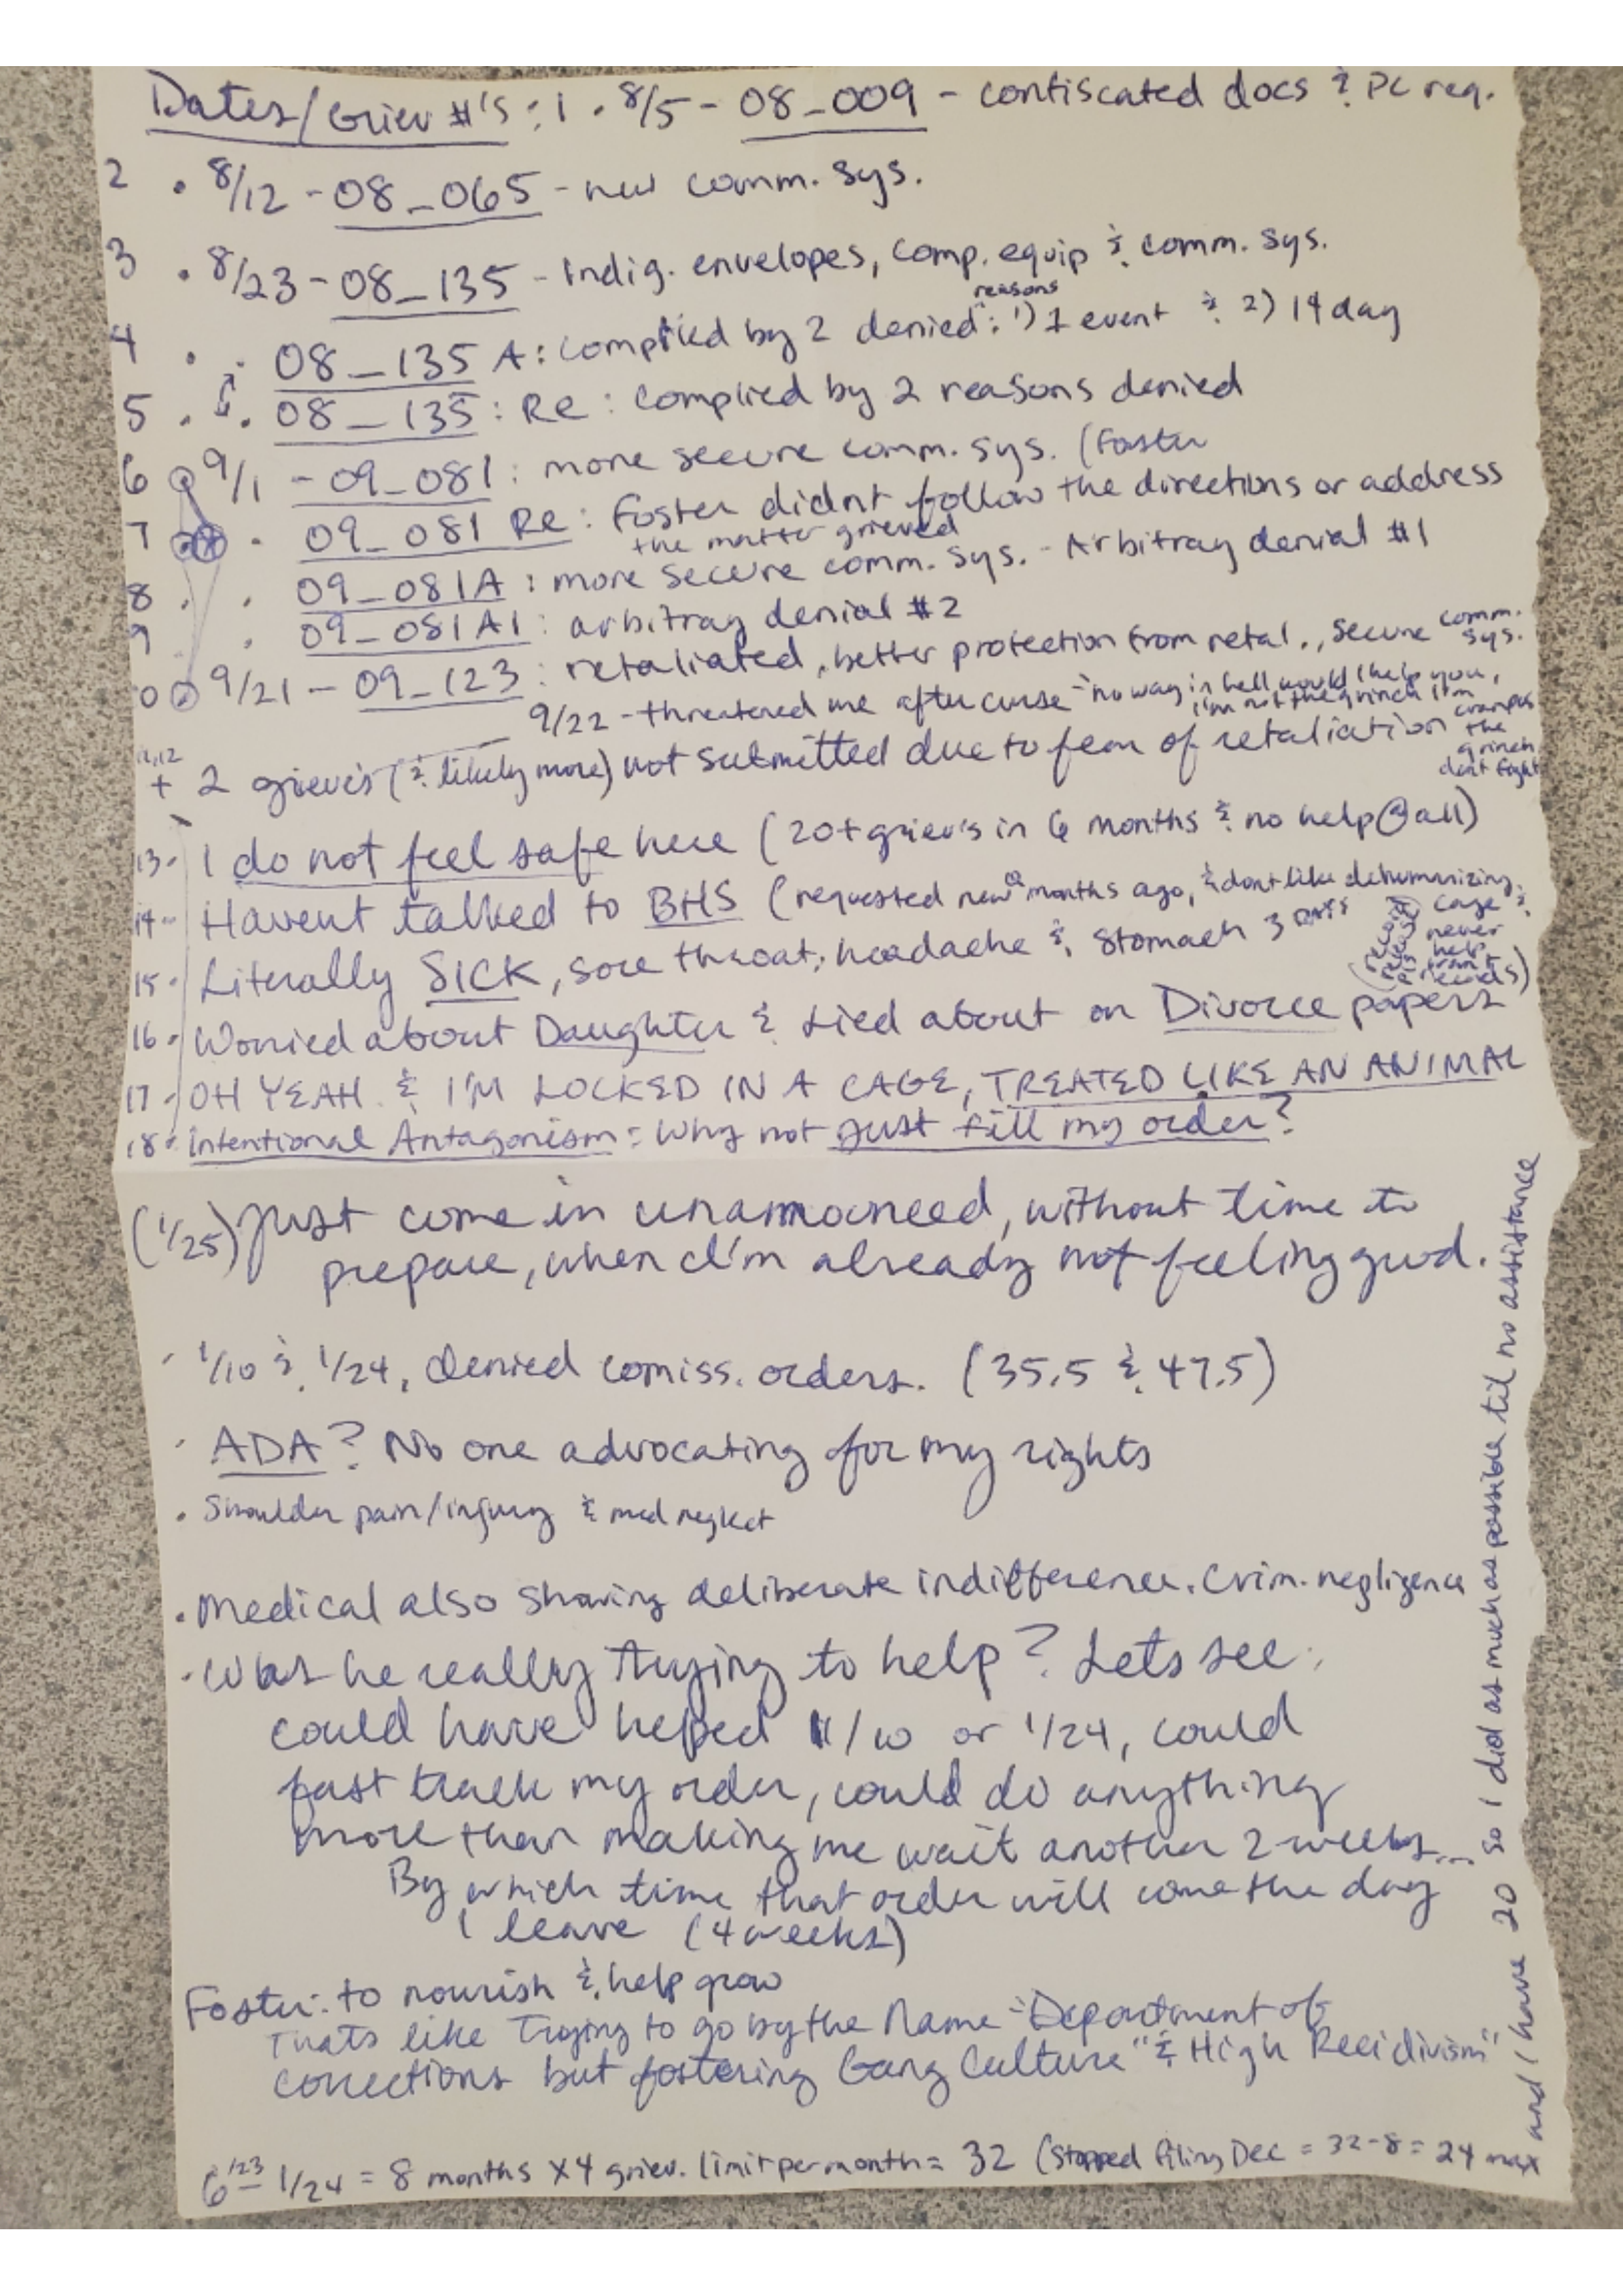 Dates/Griev #'s : 1 . 8/5 - 08_009 - confiscated docs & PC req.
2 . 8/12 - 08_065 - new comm. sys.
3 . 8/23 - 08_135 - Indig. envelopes, comp. equip & comm. sys.
4 . 08_135 A : complied by 2 denied reasons : 1) 1 event & 2) 14 day
5 . 08_135 : Re : complied by 2 reasons denied
6 9/1 - 09_081 : more secure comm. sys. (Foster
7 . 09_081 Re : Foster didnt follow the directions or address
the matter grieved
8 . 09_081A : more secure comm. sys. - Arbitray denial #1
9 . 09_081A1 : arbitray denial #2
0 9/21 - 09_123 : retaliated, better protection from retal., secure comm. sys.
9/22 - threatened me after curse "no way in hell would I help you,
I'm not the grinch I'm crampus the grinch dont fight
11,12
+ 2 griev's (& likely more) not submitted due to fear of retaliation
13 - I do not feel safe here (20+ griev's in 6 months & no help @ all)
14 - Havent talked to BHS (requested new months ago, & dont like dehumanizing cage &
never help
15 . Literally SICK, sore throat, headache & stomach 3 days
16 . Worried about Daughter & Lied about on Divorce papers
17 . OH YEAH & I'M LOCKED IN A CAGE, TREATED LIKE AN ANIMAL
18 . Intentional Antagonism : Why not just fill my order?
(1/25) Just come in unannouneed, without time to
prepare, when I'm already not feeling good.
- 1/10 & 1/24, denied comiss. orders. (35.5 & 47.5)
. ADA? No one advocating for my rights
. Shoulder pain/injury & med neglect
. Medical also showing deliberate indifference. Crim. negligence
. Was he really trying to help? Lets see:
could have heped 1/10 or 1/24, could
fast track my order, could do anything
more than making me wait another 2 weeks...
By which time that order will come the day
I leave (4 weeks)
Foster: to nourish & help grow
Thats like Trying to go by the Name "Department of
corrections but fostering Gang Culture" & High Recidivism"
6/23 - 1/24 = 8 months x 4 griev. limit per month = 32 (Stopped filing Dec = 32-8 = 24 max
and I have 20 so I did as much as possible til no assistance